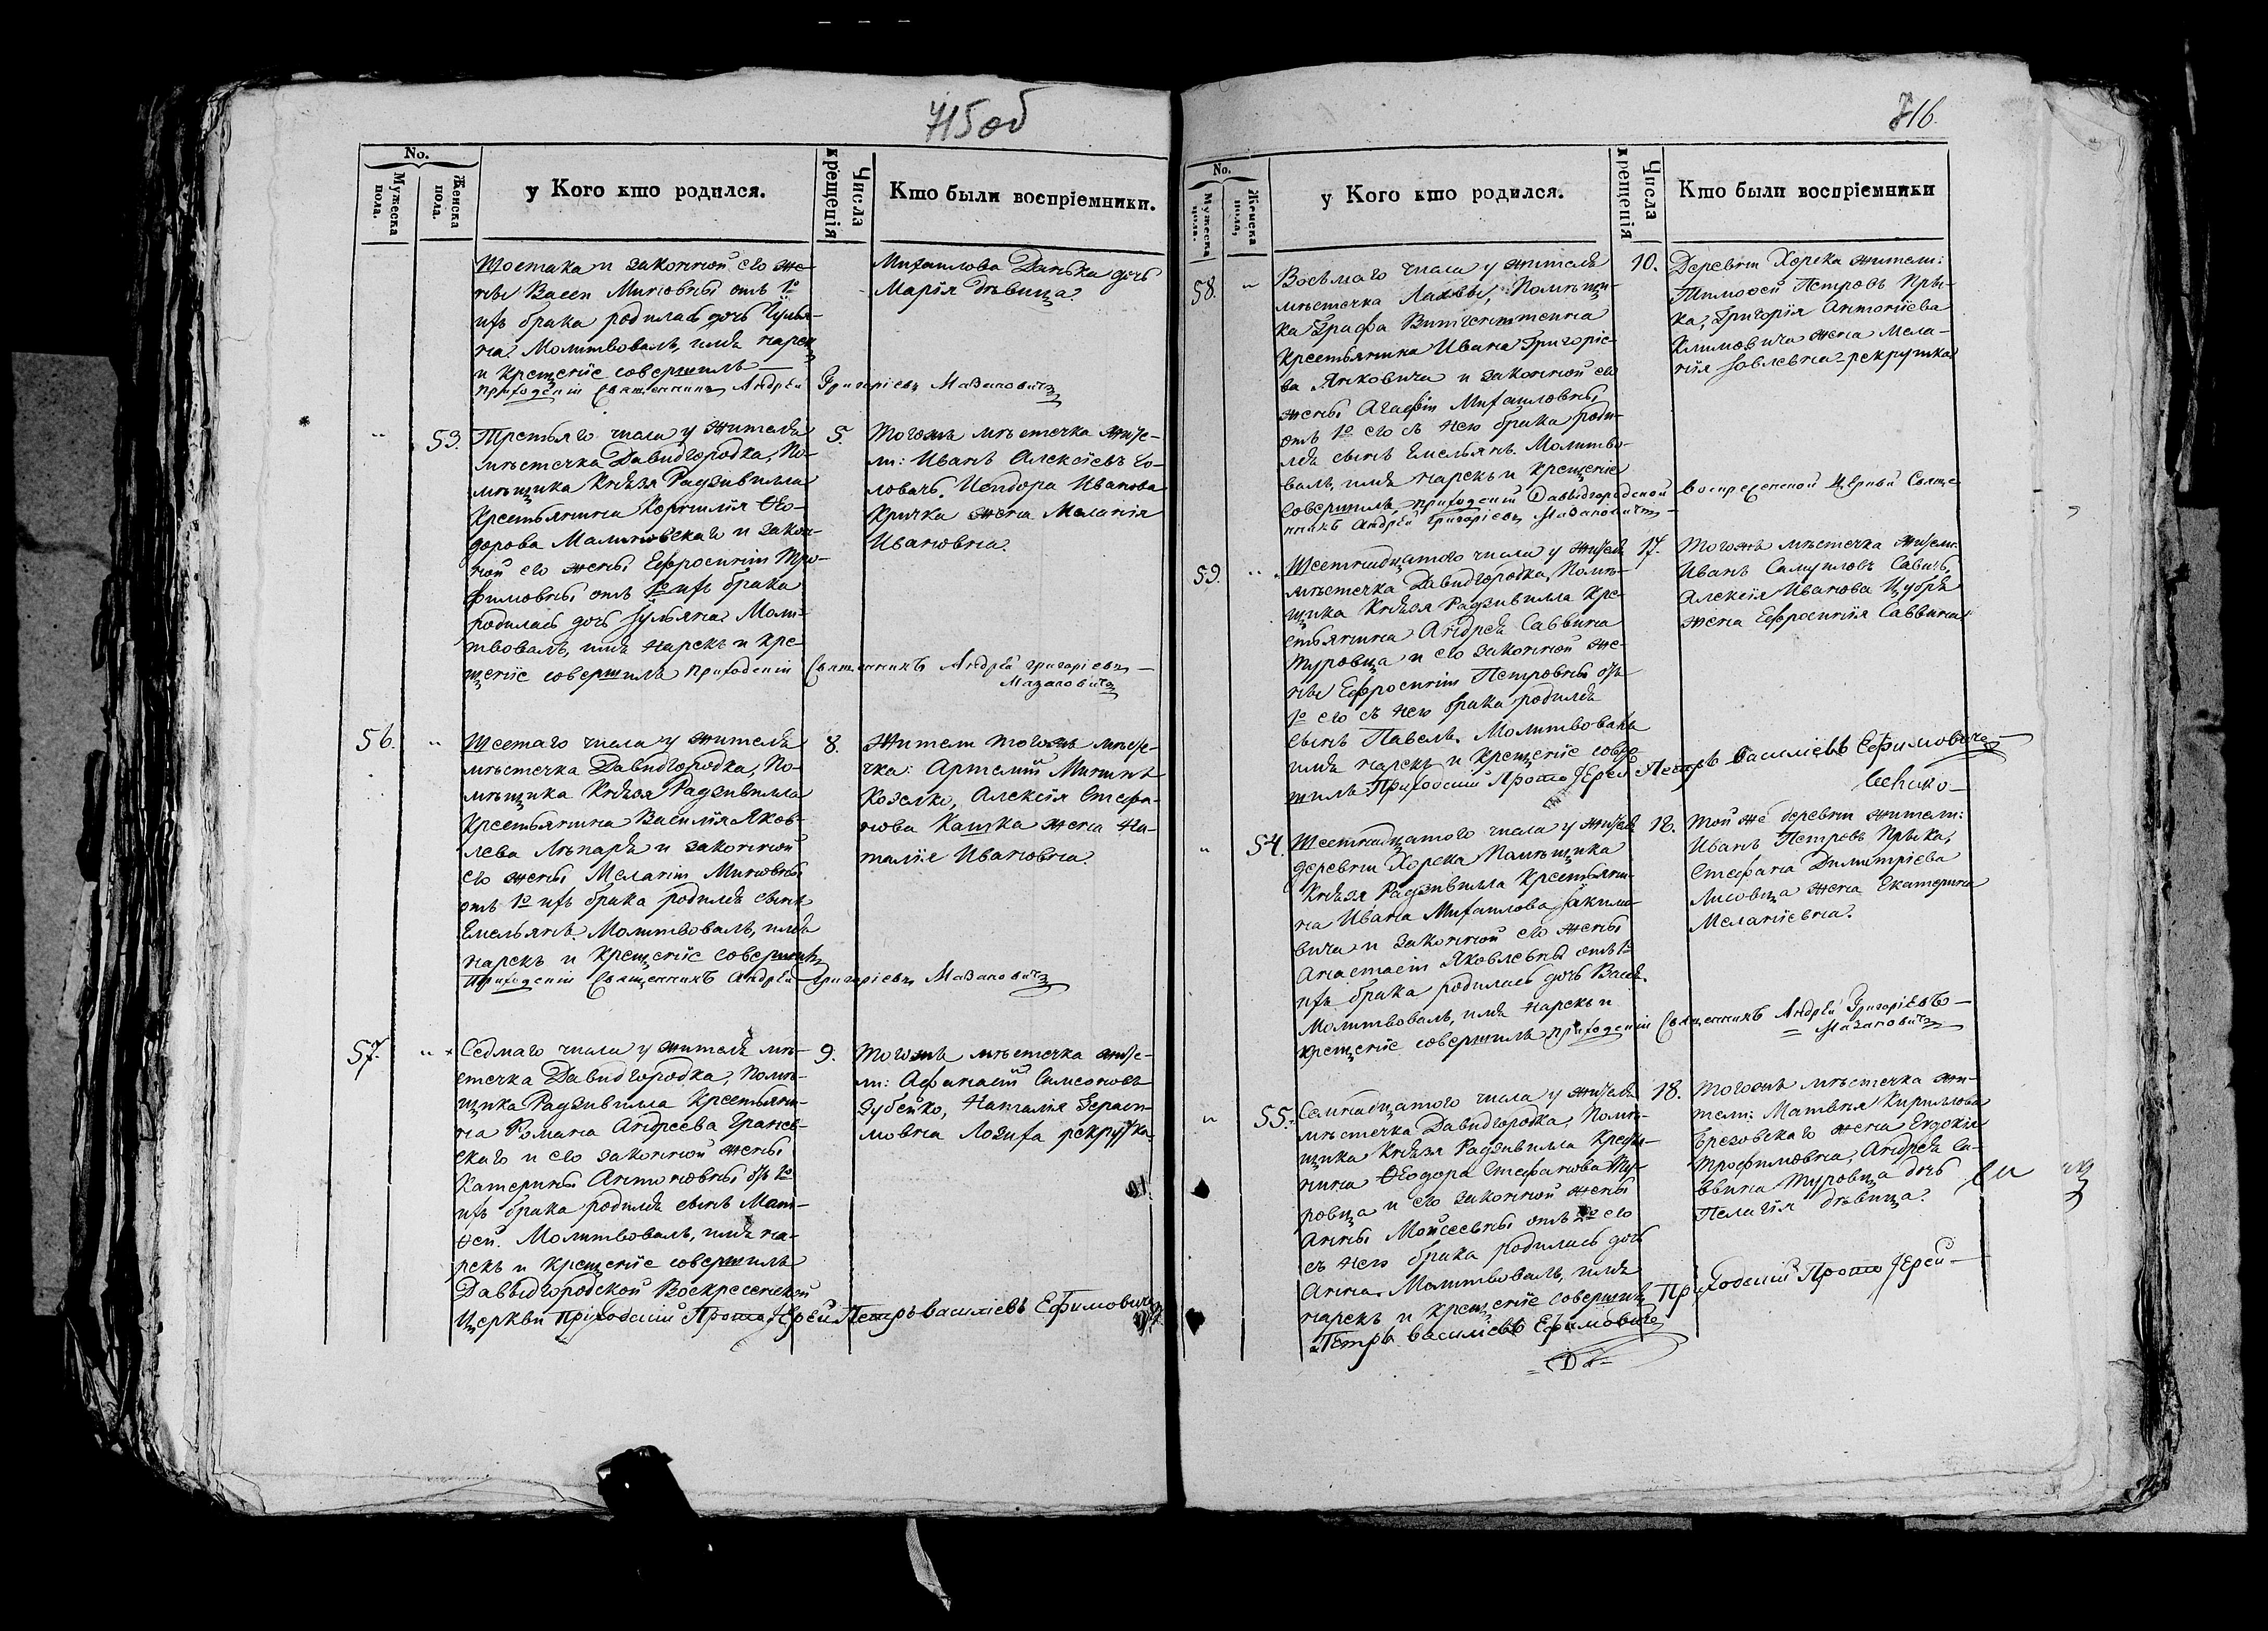 715 об
No.
Мужеска пола.
Женска пола.
у Кого кто родился.
Числа крещенія
Кто были воспріемники.
Шостака и законной его же-
ны Васси Миновны отъ 1º
ихъ брака родилась дочь Iулья-
на. Молитвовалъ, имя нарекъ
и крещеніе совершилъ
приходскій Священникъ Андрей Григоріевъ Мазановичъ
Михаилова Данька дочь
Марія дѣвица.
53. Третьяго числа у жителя
мѣстечка Давидгородка, По-
мѣщика Князя Радзивилла
Крестьянина Корнилія Ѳео-
дорова Малиновскаго и закон-
ной его жены Ефросиніи Тро-
фимовны отъ 1º ихъ брака
родилась дочь Iульяна. Моли-
твовалъ, имя нарекъ и кре-
щеніе совершилъ приходскій Священникъ Андрей Григоріевъ
Мазановичъ
5.
Тогожъ мѣстечка жите-
ли: Иванъ Алексіевъ
Исидора Иванова
Кричка жена Меланія
Ивановна.
56. " Шестаго числа у жителя
мѣстечка Давидгородка, По-
мѣщика Князя Радзивилла
Крестьянина Василія Яков-
лева и законной
его жены Меланіи Миновны
отъ 1º ихъ брака родился сынъ
Емельянъ. Молитвовалъ, имя
нарекъ и крещеніе совершилъ
Приходскій Священникъ Андрей Григоріевъ Мазановичъ
8.
Жители тогожъ мѣсте-
чка: Артемій Мининъ
Козелко, Алексія Стефа-
нова Кашка жена На-
талія Ивановна.
57. " Седмаго числа у жителя мѣ-
стечка Давидгородка, Помѣ-
щика Радзивилла Крестьяни-
на Романа Андреева
скаго и его законной жены
Катерины Антоновны отъ 1º
ихъ брака родился сынъ Мат-
ѳей. Молитвовалъ, имя на-
рекъ и крещеніе совершилъ
Давыдгородской Воскресенской
Церкви Приходскій Прото Iерей Петръ Василіевъ Ефимовичъ
9.
Тогожъ мѣстечка жите-
ли: Афанасій Симеоновъ
Зубейко, Наталія Гераси-
мовна рекрутка.
716.
No.
Мужеска пола.
Женска пола.
у Кого кто родился.
Числа крещенія
Кто были воспріемники
58. " Восьмаго числа у жителя
мѣстечка Лахвы, Помѣщи-
ка Графа Витгенштейна
Крестьянина Ивана Григоріе-
ва Янковича и законной его
жены Агафіи Михаиловны
отъ 1º его съ нею брака роди-
лся сынъ Емельянъ. Молитво-
валъ, имя нарекъ и крещеніе
совершилъ, приходской Давыдгородской Воскресенской Церкви Свяще-
нникъ Андрей Григоріевъ Мазановичъ
10.
Деревни Хорска жители:
Тимоѳей Петровъ Пры-
ка, Григорія Антоніева
Климовича жена Мела-
нія Iовлевна рекрутка
59. " Шестнадцатого числа у жителя
мѣстечка Давидгородка, Помѣ-
щика Князя Радзивилла Кре-
стьянина Андрея Саввина
Туровца и его законной же-
ны Ефросиніи Петровны отъ
1º его съ нею брака родился
сынъ Павелъ. Молитвовалъ
имя нарекъ и крещеніе совер-
шилъ Приходскій Прото Iерей Петръ Василіевъ Ефимовичъ
17.
Тогожъ мѣстечка жители:
Иванъ Самуиловъ Савичъ,
Алексія Иванова Цубря
жена Ефросинія Саввина
" 54. Шестнадцатого числа у жителя
деревни Хорска Помѣщика
Князя Радзивилла Крестьяни-
на Ивана Михаилова Якимо-
вича и законной его жены
Анастасіи Яковлевны отъ 1º
ихъ брака родилась дочь Васса.
Молитвовалъ, имя нарекъ и
крещеніе совершилъ приходскій Священникъ Андрей Григоріевъ
Мазановичъ
18.
Той же деревни жители:
Иванъ Петровъ Прыка,
Стефана Димитріева
Лисовца жена Екатерина
Меланіевна.
" 55. Семнадцатого числа у жителя
мѣстечка Давидгородка, Помѣ-
щика Князя Радзивилла Крестья-
нина Ѳеодора Стефанова Ту-
ровца и его законной жены
Анны Мойсеевны отъ его
съ нею брака родилась дочь
Анна. Молитвовалъ, имя
нарекъ и крещеніе совершилъ Приходскій Прото Iерей
Петръ Василіевъ Ефимовичъ
18.
Тогожъ мѣстечка жи-
тели: Матвѣя Кириллова
Брезовскаго жена Евдокія
Трофимовна, Андрея Са-
ввина Туровца дочь
Пелагія дѣвица.